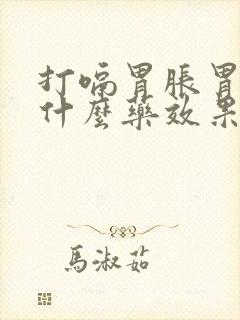 打嗝胃脹胃
什麼藥效果
馬淑茹